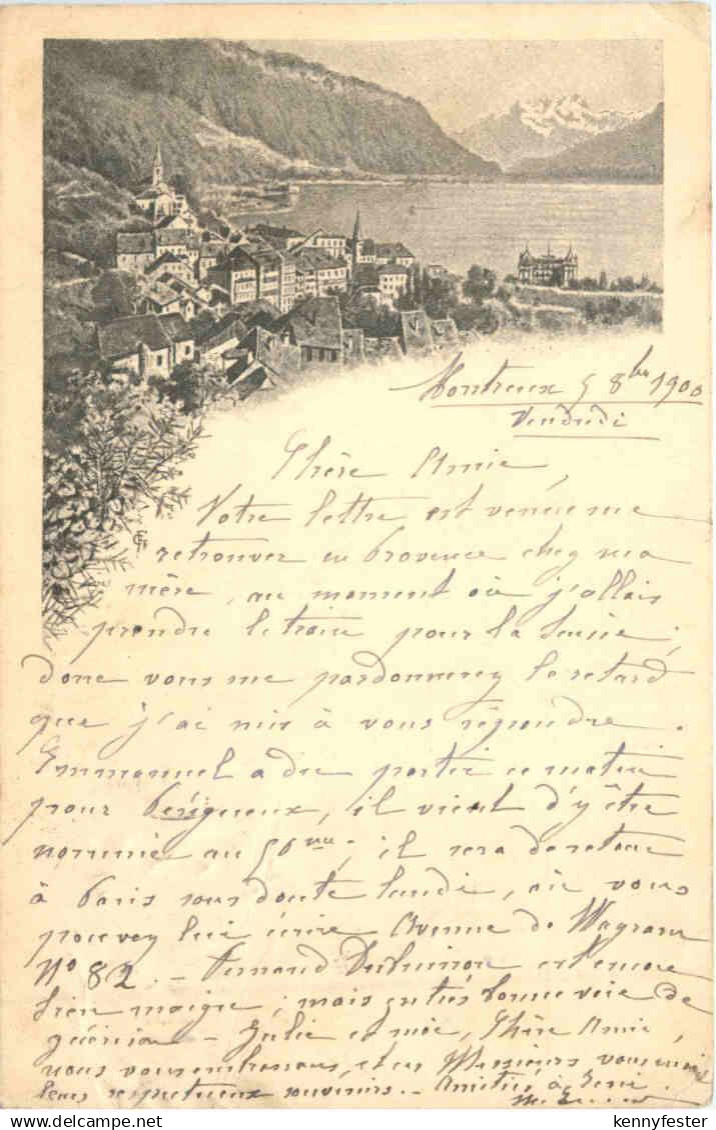 Montreux 5 8bre 1900
Vendredi
Chère Amie,
Votre lettre est venue me
retrouver en Provence chez ma
mère, au moment où j'allais
prendre le train pour la Suisse;
donc vous me pardonnerez le retard
que j'ai mis à vous répondre.
Emmanuel a du partir ce matin
pour Périgueux, il vient d'y être
nommé au 50me; il sera de retour
à Paris sans doute lundi, où vous
pouvez lui écrire Avenue de Wagram
No 82. - Fernand est encore
bien maigre; mais en très bonne voie de
guérison - Julie et moi, Chère Amie,
nous vous embrassons, et ces Messieurs vous
leurs respectueux souvenirs. - Amitié à
delcampe.net
kennyfester